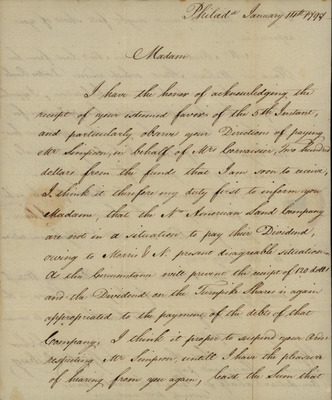 Philada January 14th 1798
Madam
I have the honor of acknowledging the
receipt of your esteemed favor of the 5th Instant,
and particularly observe your Direction of paying
Mr Simpson, in behalf of Mrs Cornaisier, Two Hundred
dollars from the funds that I am soon to receive,
I think it therefore my duty first to inform you
Madam, that the No American Land Company
are not in a situation to pay their Dividend,
owing to Morris & N. present disagreable situation
As this Circumstance will prevent the receipt of 120 dolls
and the Dividend on the Turnpike Shares is again
appropriated to the payment of the debts of that
Company, I think it proper to suspend your
respecting Mr Simpson, untill I have the pleasure
of hearing from you again, least the Sum that